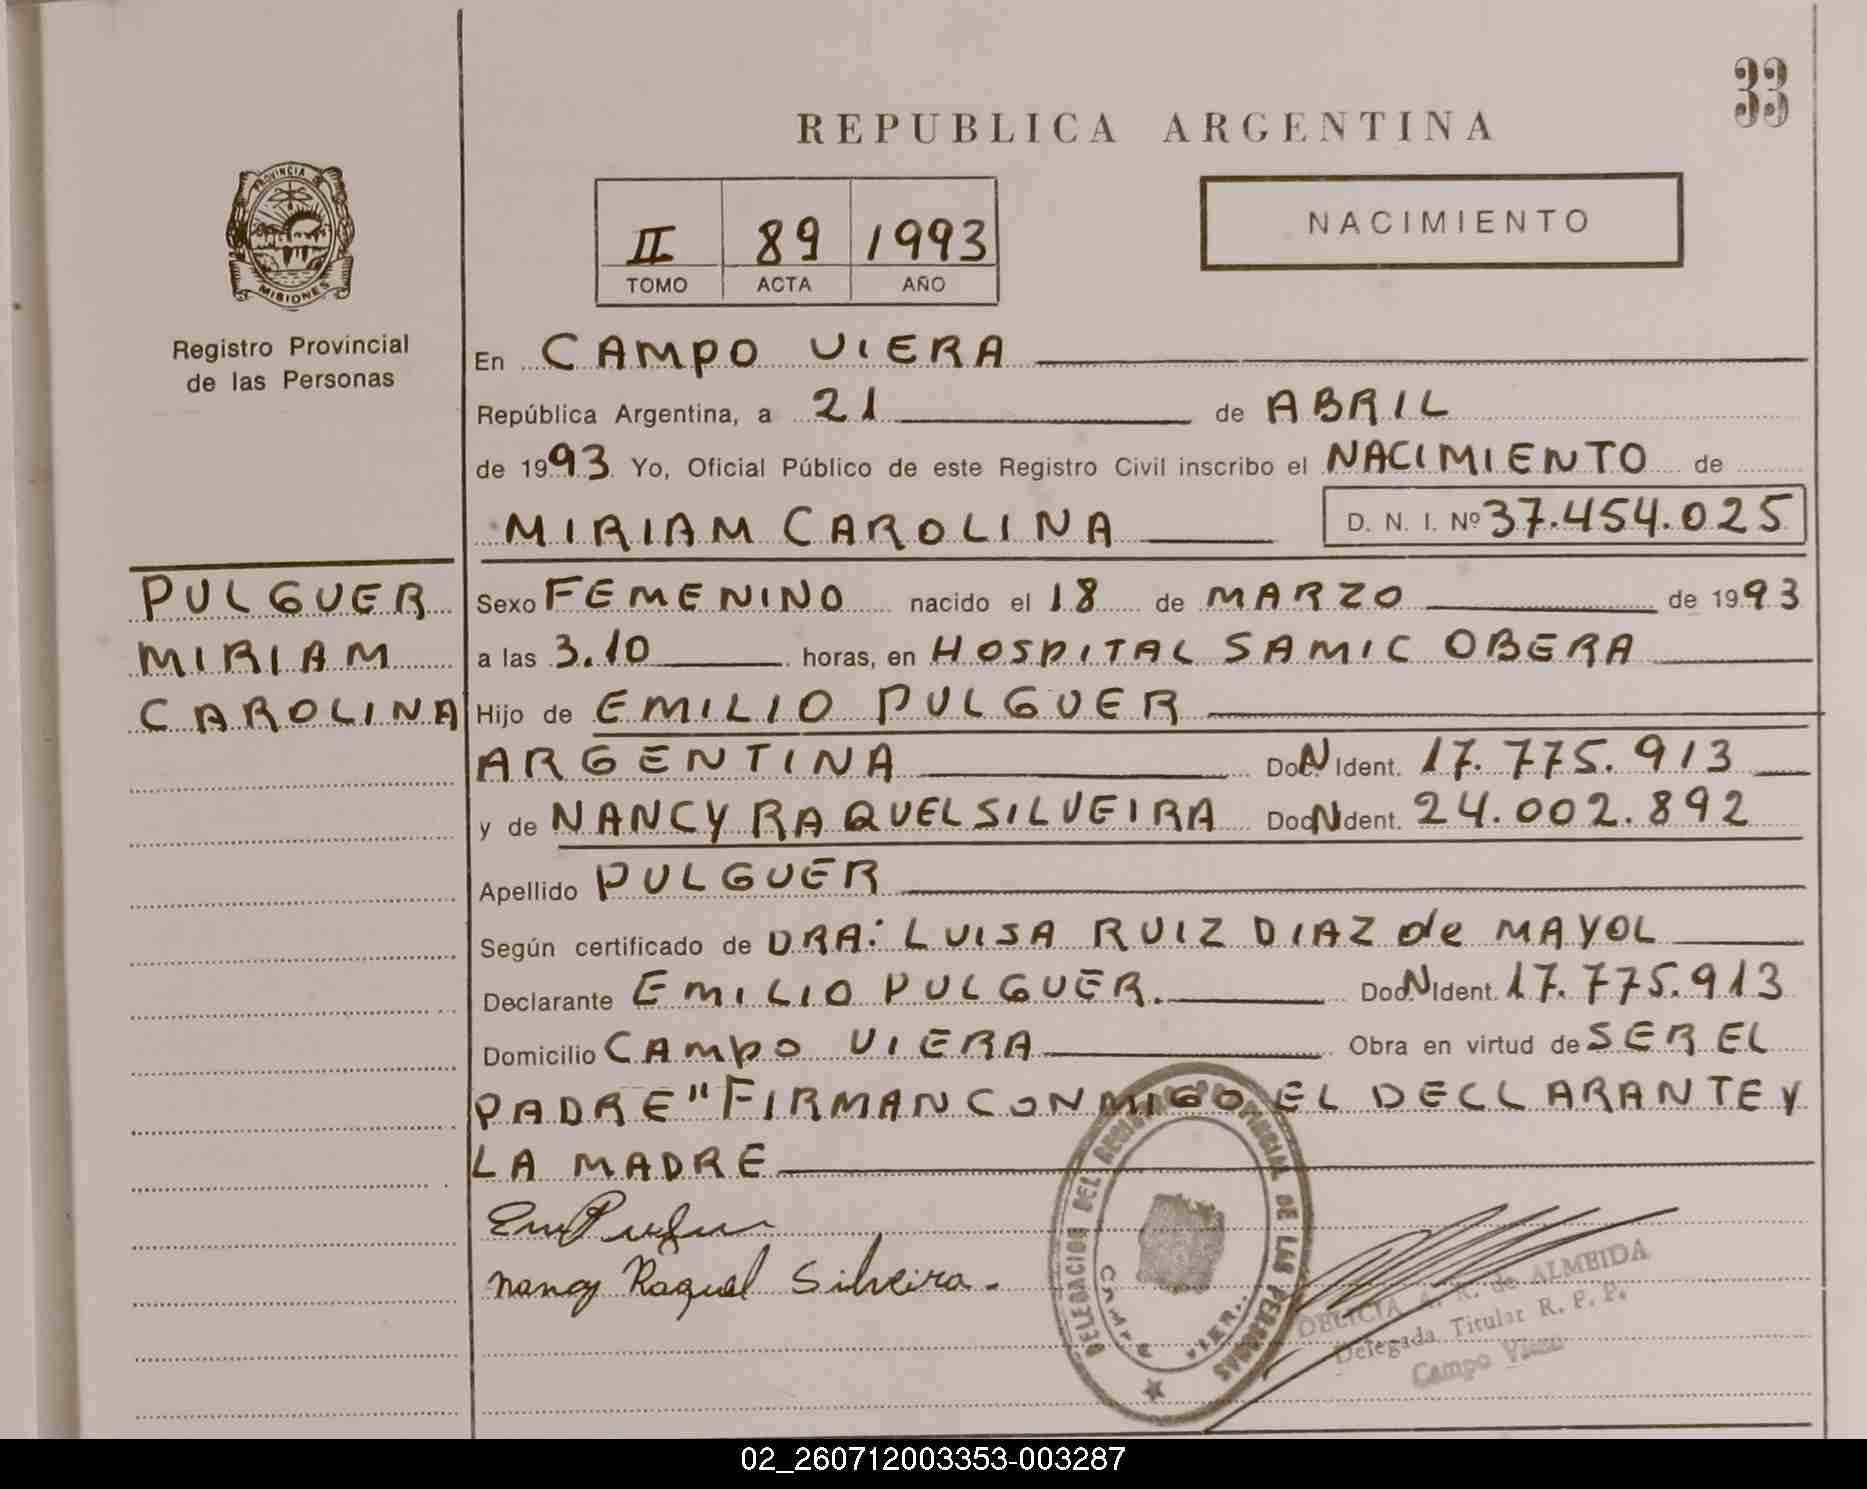 33
REPUBLICA ARGENTINA
PROVINCIA DE
MISIONES
Registro Provincial
de las Personas
II 89 1993
TOMO ACTA AÑO
NACIMIENTO
En CAMPO VIERA
República Argentina, a 21 de ABRIL
de 1993. Yo, Oficial Público de este Registro Civil inscribo el NACIMIENTO de
MIRIAM CAROLINA D. N. I. Nº 37.454.025
PULGUER
MIRIAM
CAROLINA
Sexo FEMENINO nacido el 18 de MARZO de 1993
a las 3.10 horas, en HOSPITAL SAMIC OBERA
Hijo de EMILIO PULGUER
ARGENTINA Doc.N Ident. 17.775.913
y de NANCY RAQUEL SILVEIRA Doc.N Ident. 24.002.892
Apellido PULGUER
Según certificado de DRA: LUISA RUIZ DIAZ de MAYOL
Declarante EMILIO PULGUER. Doc.N Ident. 17.775.913
Domicilio CAMPO VIERA Obra en virtud de SER EL
PADRE" FIRMAN CONMIGO EL DECLARANTE Y
LA MADRE
Nancy Raquel Silveira.
DELEGACION DEL REGISTRO PROVINCIAL DE LAS PERSONAS
CAMPO VIERA
DELICIA A. R. de ALMEIDA
Delegada Titular R. P. P.
Campo Viera
02_260712003353-003287